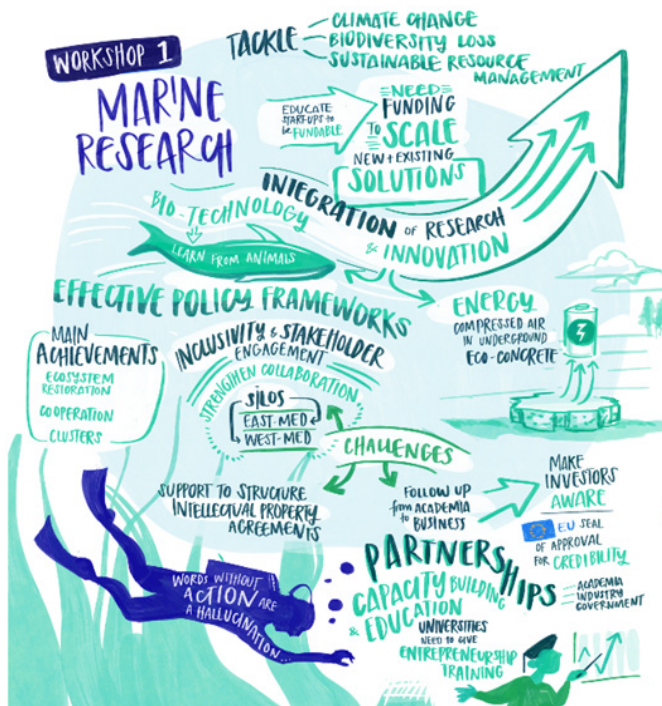 WORKSHOP 1
MARINE
RESEARCH
TACKLE
CLIMATE CHANGE
BIODIVERSITY LOSS
SUSTAINABLE RESOURCE
MANAGEMENT
EDUCATE
START-UPS to
be FUNDABLE
NEED
FUNDING
To SCALE
NEW + EXISTING
SOLUTIONS
INTEGRATION OF RESEARCH
& INNOVATION
BIO-TECHNOLOGY
LEARN FROM ANIMALS
EFFECTIVE POLICY FRAMEWORKS
ENERGY
COMPRESSED AIR
IN UNDERGROUND
ECO-CONCRETE
MAIN
ACHIEVEMENTS
ECOSYSTEM
RESTORATION
COOPERATION
CLUSTERS
INCLUSIVITY & STAKEHOLDER
ENGAGEMENT
STRENGTHEN COLLABORATION
SILOS
EAST-MED
WEST-MED
CHALLENGES
SUPPORT TO STRUCTURE
INTELLECTUAL PROPERTY
AGREEMENTS
FOLLOW UP
from ACADEMIA
to BUSINESS
MAKE
INVESTORS
AWARE
EU SEAL
OF APPROVAL
FOR CREDIBILITY
PARTNERSHIPS
ACADEMIA
INDUSTRY
GOVERNMENT
CAPACITY BUILDING
& EDUCATION
UNIVERSITIES
NEED TO GIVE
ENTREPRENEURSHIP
TRAINING
WORDS WITHOUT
ACTION ARE
A HALLUCINATION